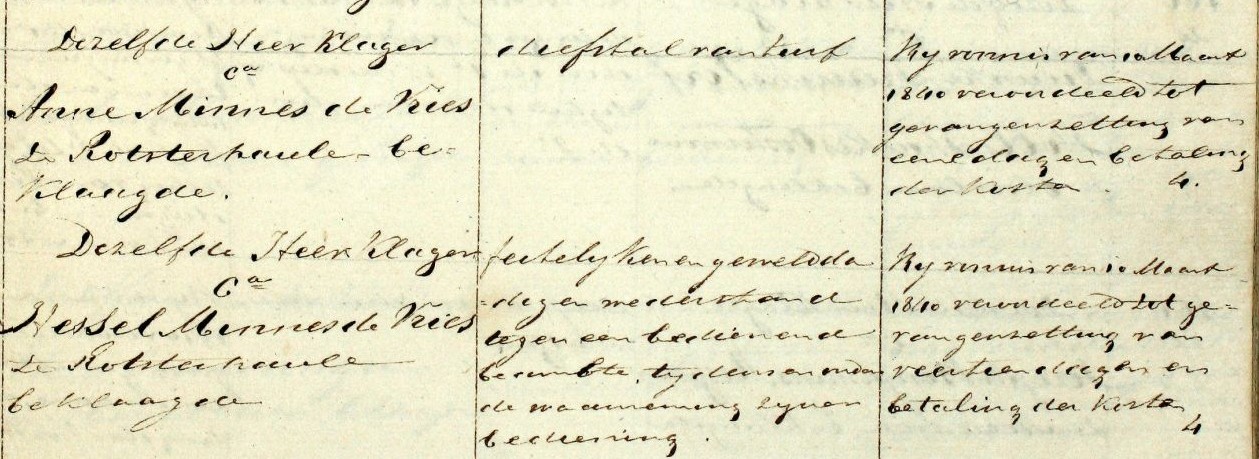 Dezelfde Heer Klager
Ca
Anne Minnes de Vries
te Rotsterhaule - be-
klaagde.
diefstal van turf
By vonnis van 10 Maart
1840 veroordeeld tot
gevangenzetting van
eene dag en betaling
der kosten. 4.
Dezelfde Heer Klager
Ca
Hessel Minnes de Vries
te Rotsterhaule
beklaagde
feitelyken en gewelda
-digen wederstand
tegen een bedienend
beambte, tydens en onder
de waarneming zyner
bediening.
By vonnis van 10 Maart
1840 veroordeeld tot ge-
vangenzetting van
veertien dagen en
betaling der kosten
4